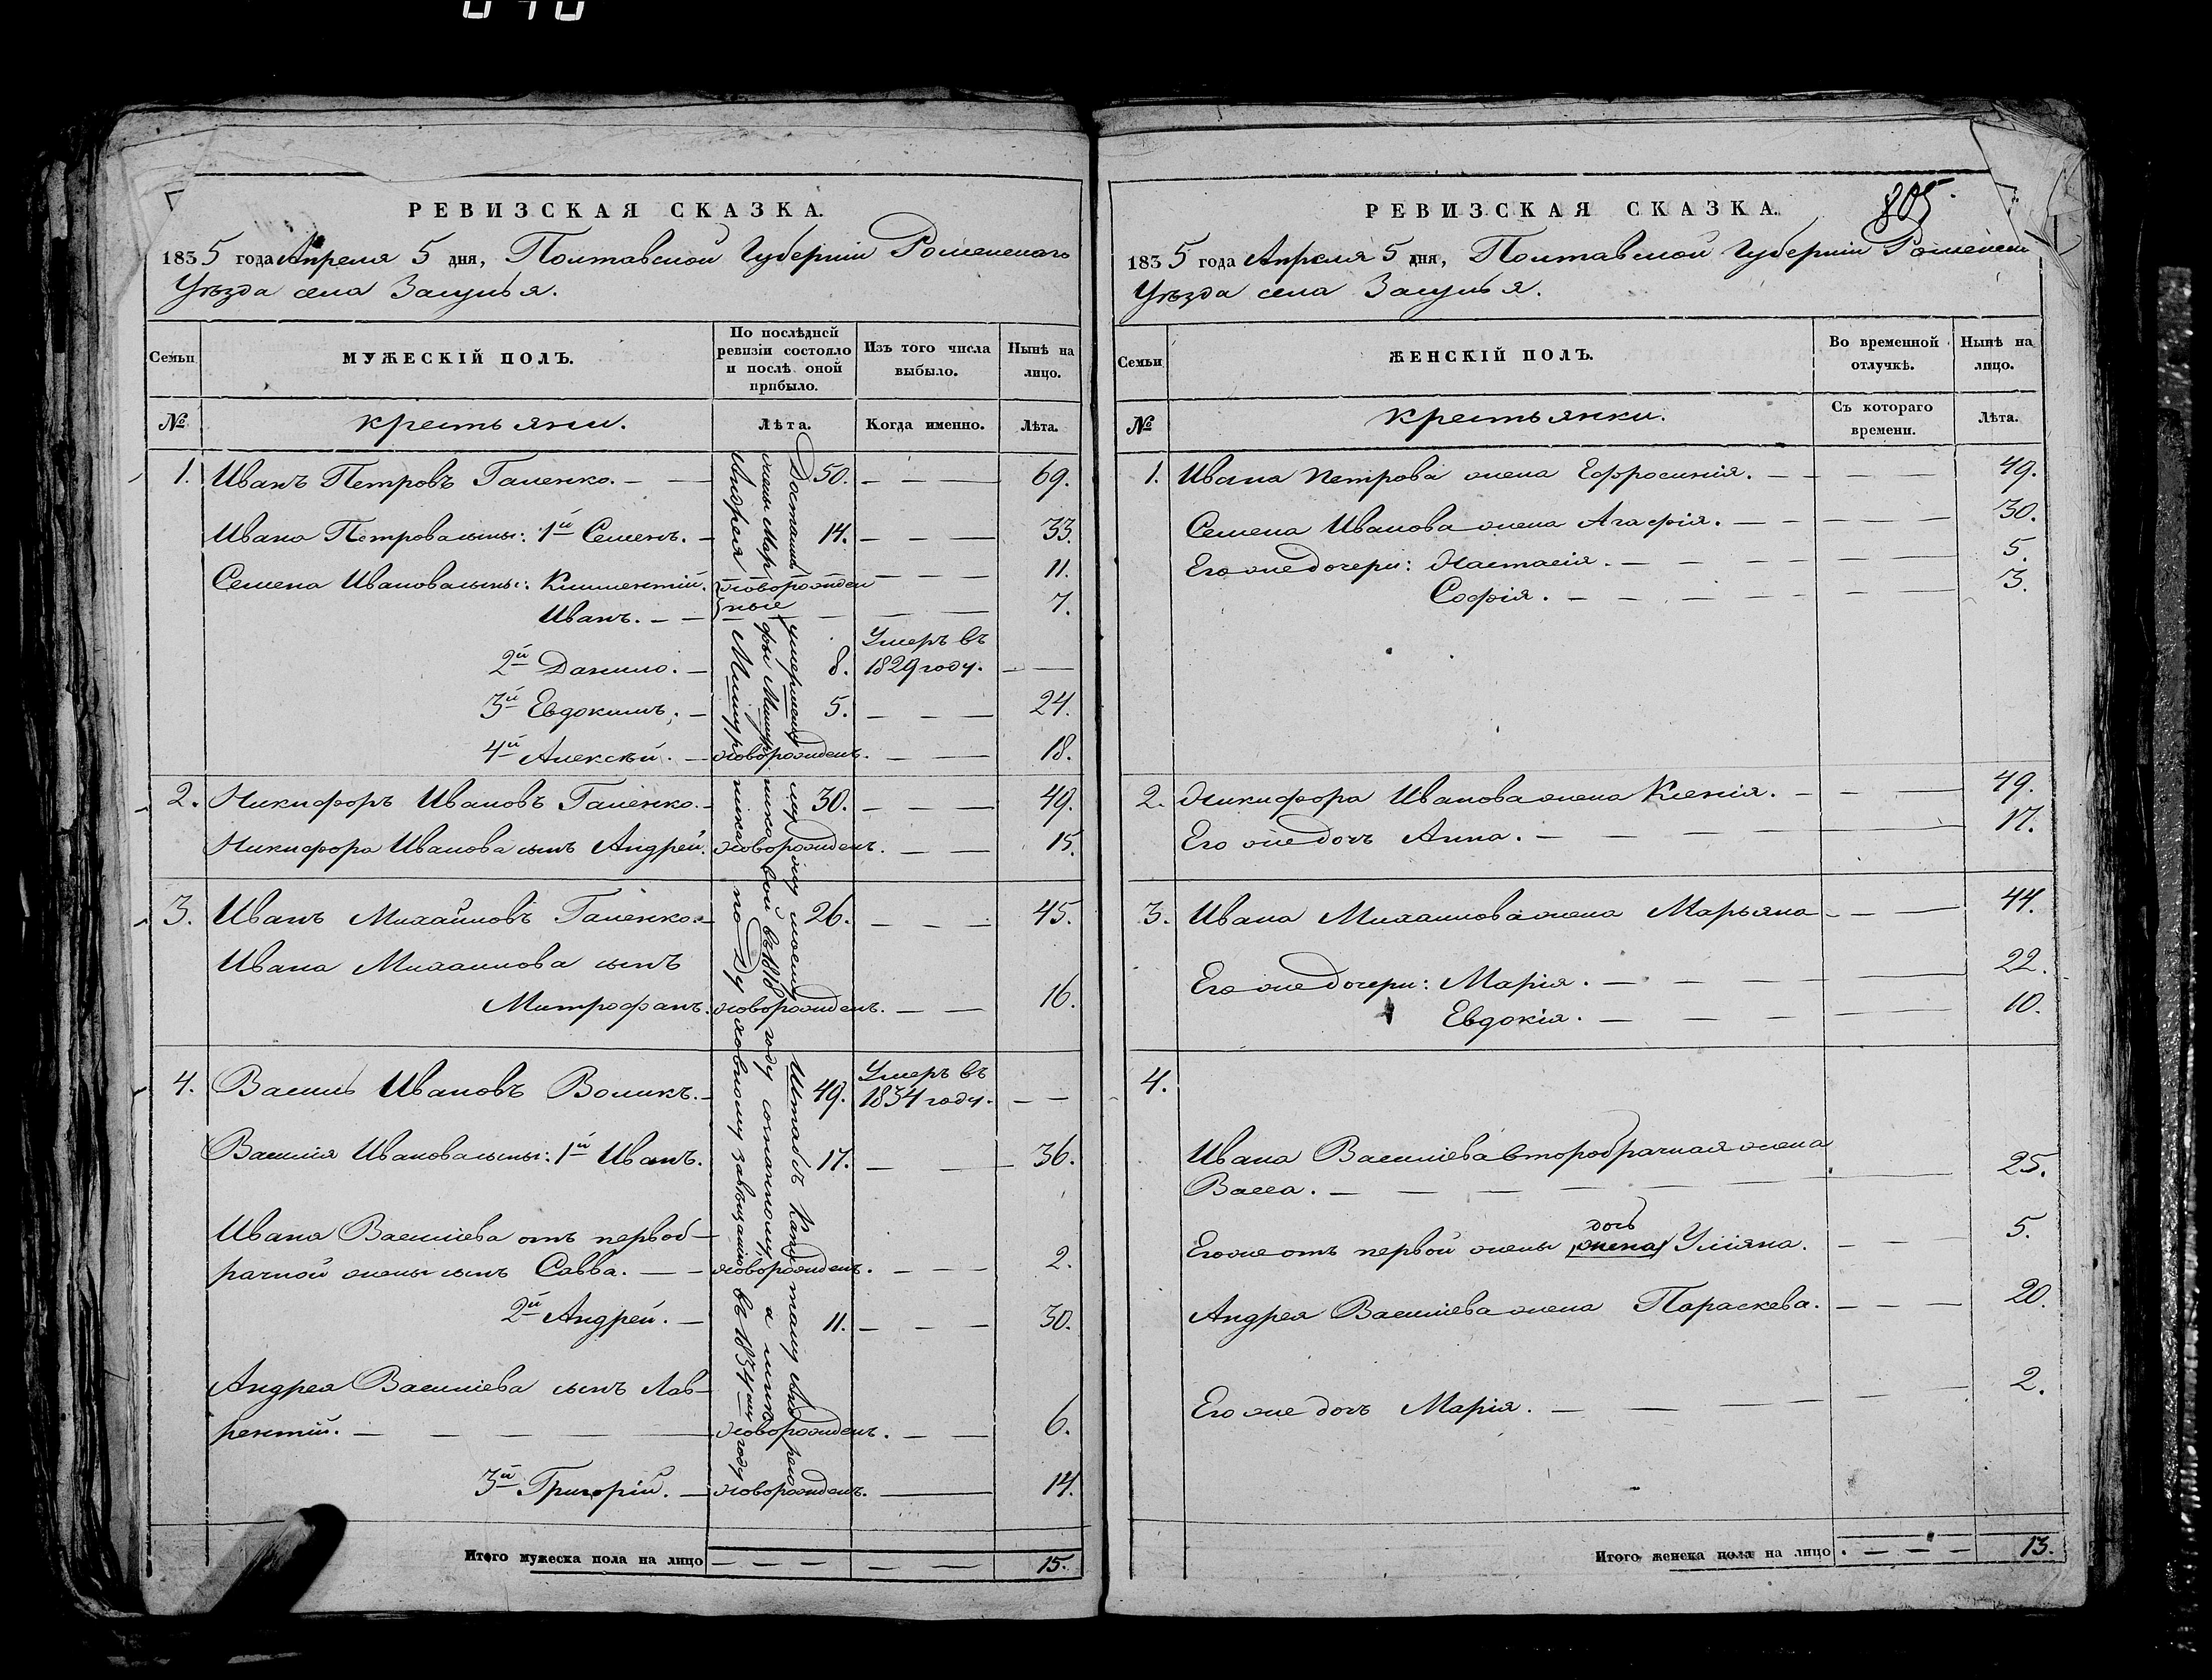 РЕВИЗСКАЯ СКАЗКА.
1835 года Апреля 5 дня, Полтавской Губерніи Роменскаго
Уѣзда села Засулья.
Семьи
МУЖЕСКІЙ ПОЛЪ.
По послѣдней ревизіи состояло и послѣ оной прибыло.
Изъ того числа выбыло.
Нынѣ на лицо.
№
крестьяни.
Лѣта.
Когда именно.
Лѣта.
1. Иванъ Петровъ Галенко. — — 50. — — — 69.
Ивана Петрова сыны: 1й Семенъ. — 14. — — — 33.
Семена Иванова сыны: Климентій. новорожден — — — 11.
Иванъ. — — ные — — 7.
2й Данило. — 8. Умеръ въ 1829 году. — —
3й Евдокимъ. — 5. — — — 24.
4й Алексѣй. — новорожденъ. — — 18.
2. Никифоръ Ивановъ Галенко. — 30. — — — 49.
Никифора Иванова сынъ Андрей. новорожденъ. — — 15.
3. Иванъ Михайловъ Галенко. — 26. — — — 45.
Ивана Михаилова сынъ
Митрофанъ. новорожденъ. — — 16.
4. Василь Ивановъ Воликъ. — 49. Умеръ въ 1834 году. — —
Василія Иванова сыны: 1й Иванъ. 17. — — 36.
Ивана Василіева отъ первоб-
рачной жены сынъ Савва. — — новорожденъ. — — — 2.
2й Андрей. — 11. — — — 30.
Андрея Василіева сынъ Лав-
рентій. — — — — — новорожденъ. — — 6.
3й Григорій. — новорожденъ. — 14.
Достались умершему мужу моему Штабсъ Капитану Анд
жены Марфы Мицурниковой въ 1818 году состаяному, а мнѣ
Андрея Мицурника по Духовному завѣщанію въ 1834м году
Итого мужеска пола на лицо — — — — — 15.
РЕВИЗСКАЯ СКАЗКА.
205.
1835 года Апреля 5 дня, Полтавской Губерніи Роменск
Уѣзда села Засулья.
Семьи
ЖЕНСКІЙ ПОЛЪ.
Во временной отлучкѣ.
Нынѣ на лицо.
№
крестьянки.
Съ котораго времени.
Лѣта.
1. Ивана Петрова жена Ефросинія. — — — — 49.
Семена Иванова жена Агафія. — — — — — 30.
Его же дочери: Настасія. — — — — — 5.
Софія. — — — — — — 3.
2. Никифора Иванова жена Ксенія. — — — 49.
Его же дочь Анна. — — — — — 17.
3. Ивана Михаилова жена Марьяна — — — 44.
Его же дочери: Марія. — — — — 22.
Евдокія. — — — — — 10.
4.
Ивана Василіева второбрачная жена
Васса. — — — — — — 25.
дочь
Его же отъ первой жены жена Уліяна. — — — 5.
Андрея Василіева жена Параскева. — — — 20.
Его же дочь Марія. — — — — 2.
Итого женска пола на лицо — — — 13.